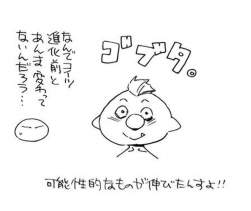 ゴブタ。
なんでコイツ
進化前と
あんま変わって
ないんだろう…
可能性的なものが伸びたんすよ!!